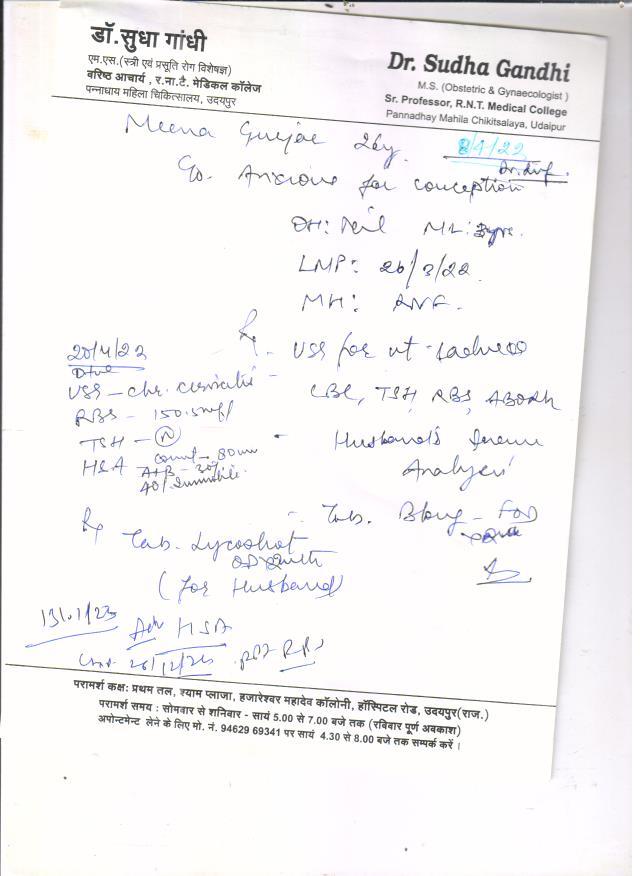 डॉ. सुधा गांधी
एम.एस.(स्त्री एवं प्रसूति रोग विशेषज्ञ)
वरिष्ठ आचार्य , र.ना.टे. मेडिकल कॉलेज
पन्नाधाय महिला चिकित्सालय, उदयपुर
Dr. Sudha Gandhi
M.S. (Obstetric & Gynaecologist )
Sr. Professor, R.N.T. Medical College
Pannadhay Mahila Chikitsalaya, Udaipur
Meena 26y. 8/4/22
Anxious for conception
OH: Nil ML: 3yrs.
LMP: 26/3/22
MH:
Rx
USS for ut
CBC, TSH, RBS, ABORh
- Husband's Semen
Analysis
Tab.
20/4/22
USS - chr. cervicitis
RBS - 150.5
TSH - N
HSA count - 80
40%
Rx Tab. Lycoshot
OD
(for Husband)
13/1/23
Adv HSA
LMP 26/12/22 RBS
परामर्श कक्ष: प्रथम तल, श्याम प्लाजा, हजारेश्वर महादेव कॉलोनी, हॉस्पिटल रोड, उदयपुर(राज.)
परामर्श समय : सोमवार से शनिवार - सायं 5.00 से 7.00 बजे तक (रविवार पूर्ण अवकाश)
अपोन्टमेन्ट लेने के लिए मो. नं. 94629 69341 पर सायं 4.30 से 8.00 बजे तक सम्पर्क करें ।